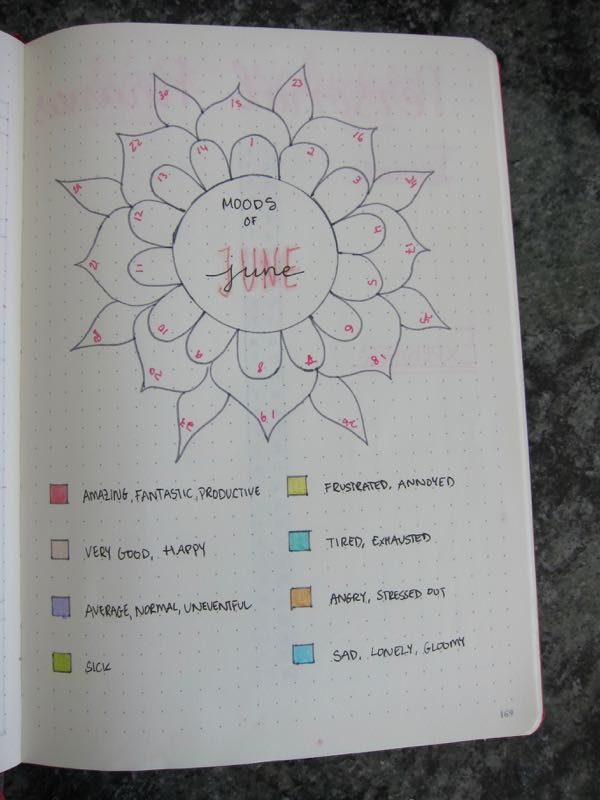 30
15
23
22
14
1
2
16
13
3
29
24
12
4
17
MOODS
OF
JUNE
june
21
11
5
28
10
6
25
9
8
7
18
20
19
27
26
AMAZING, FANTASTIC, PRODUCTIVE
VERY GOOD, HAPPY
AVERAGE, NORMAL, UNEVENTFUL
SICK
FRUSTRATED, ANNOYED
TIRED, EXHAUSTED
ANGRY, STRESSED OUT
SAD, LONELY, GLOOMY
169